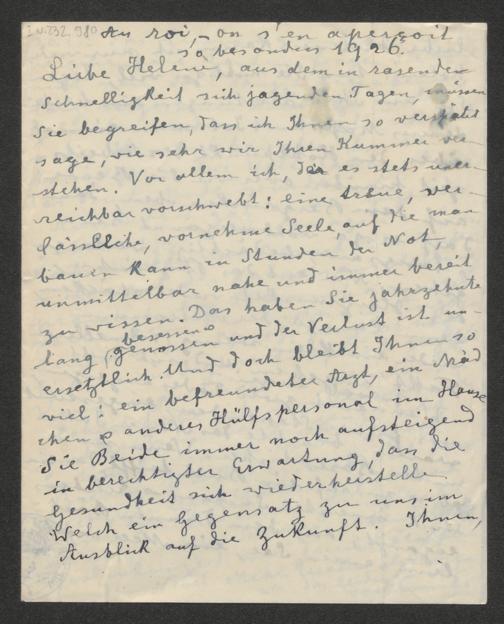 I.N. 232.980
Au roi, - on s'en aperçoit
so besonders 1926.
Liebe Helene, aus dem in rasender
Schnelligkeit sich jagenden Tagen, müssen
Sie begreifen, dass ich Ihnen so verspätet
sage, wie sehr wir Ihren Kummer ver-
stehen. Vor allem ich, der es stets uner-
reichbar vorschwebt: eine treue, ver-
lässliche, vornehme Seele, auf die man
bauen kann in Stunden der Not,
unmittelbar nahe und immer bereit
zu wissen. Das haben Sie jahrzehnte
lang besessen genossen und der Verlust ist un-
ersetzlich. Und doch bleibt Ihnen so
viel: ein befreundeter Arzt, ein Mäd
chen anderes Hülfspersonal im Hause
Sie Beide immer noch aufsteigend
in berechtigter Erwartung, dass die
Gesundheit sich wiederherstelle
Welch ein Gegensatz zu uns im
Ausblick auf die Zukunft. Ihnen,